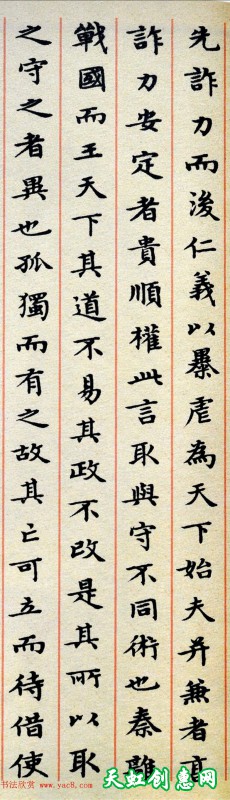 先詐力而後仁義以暴虐為天下始夫并兼者高
詐力安定者貴順權此言取與守不同術也秦雖
戰國而王天下其道不易其政不改是其所以取
之守之者異也孤獨而有之故其亡可立而待借使
书法欣赏 www.yac8.com
天虹创惠网